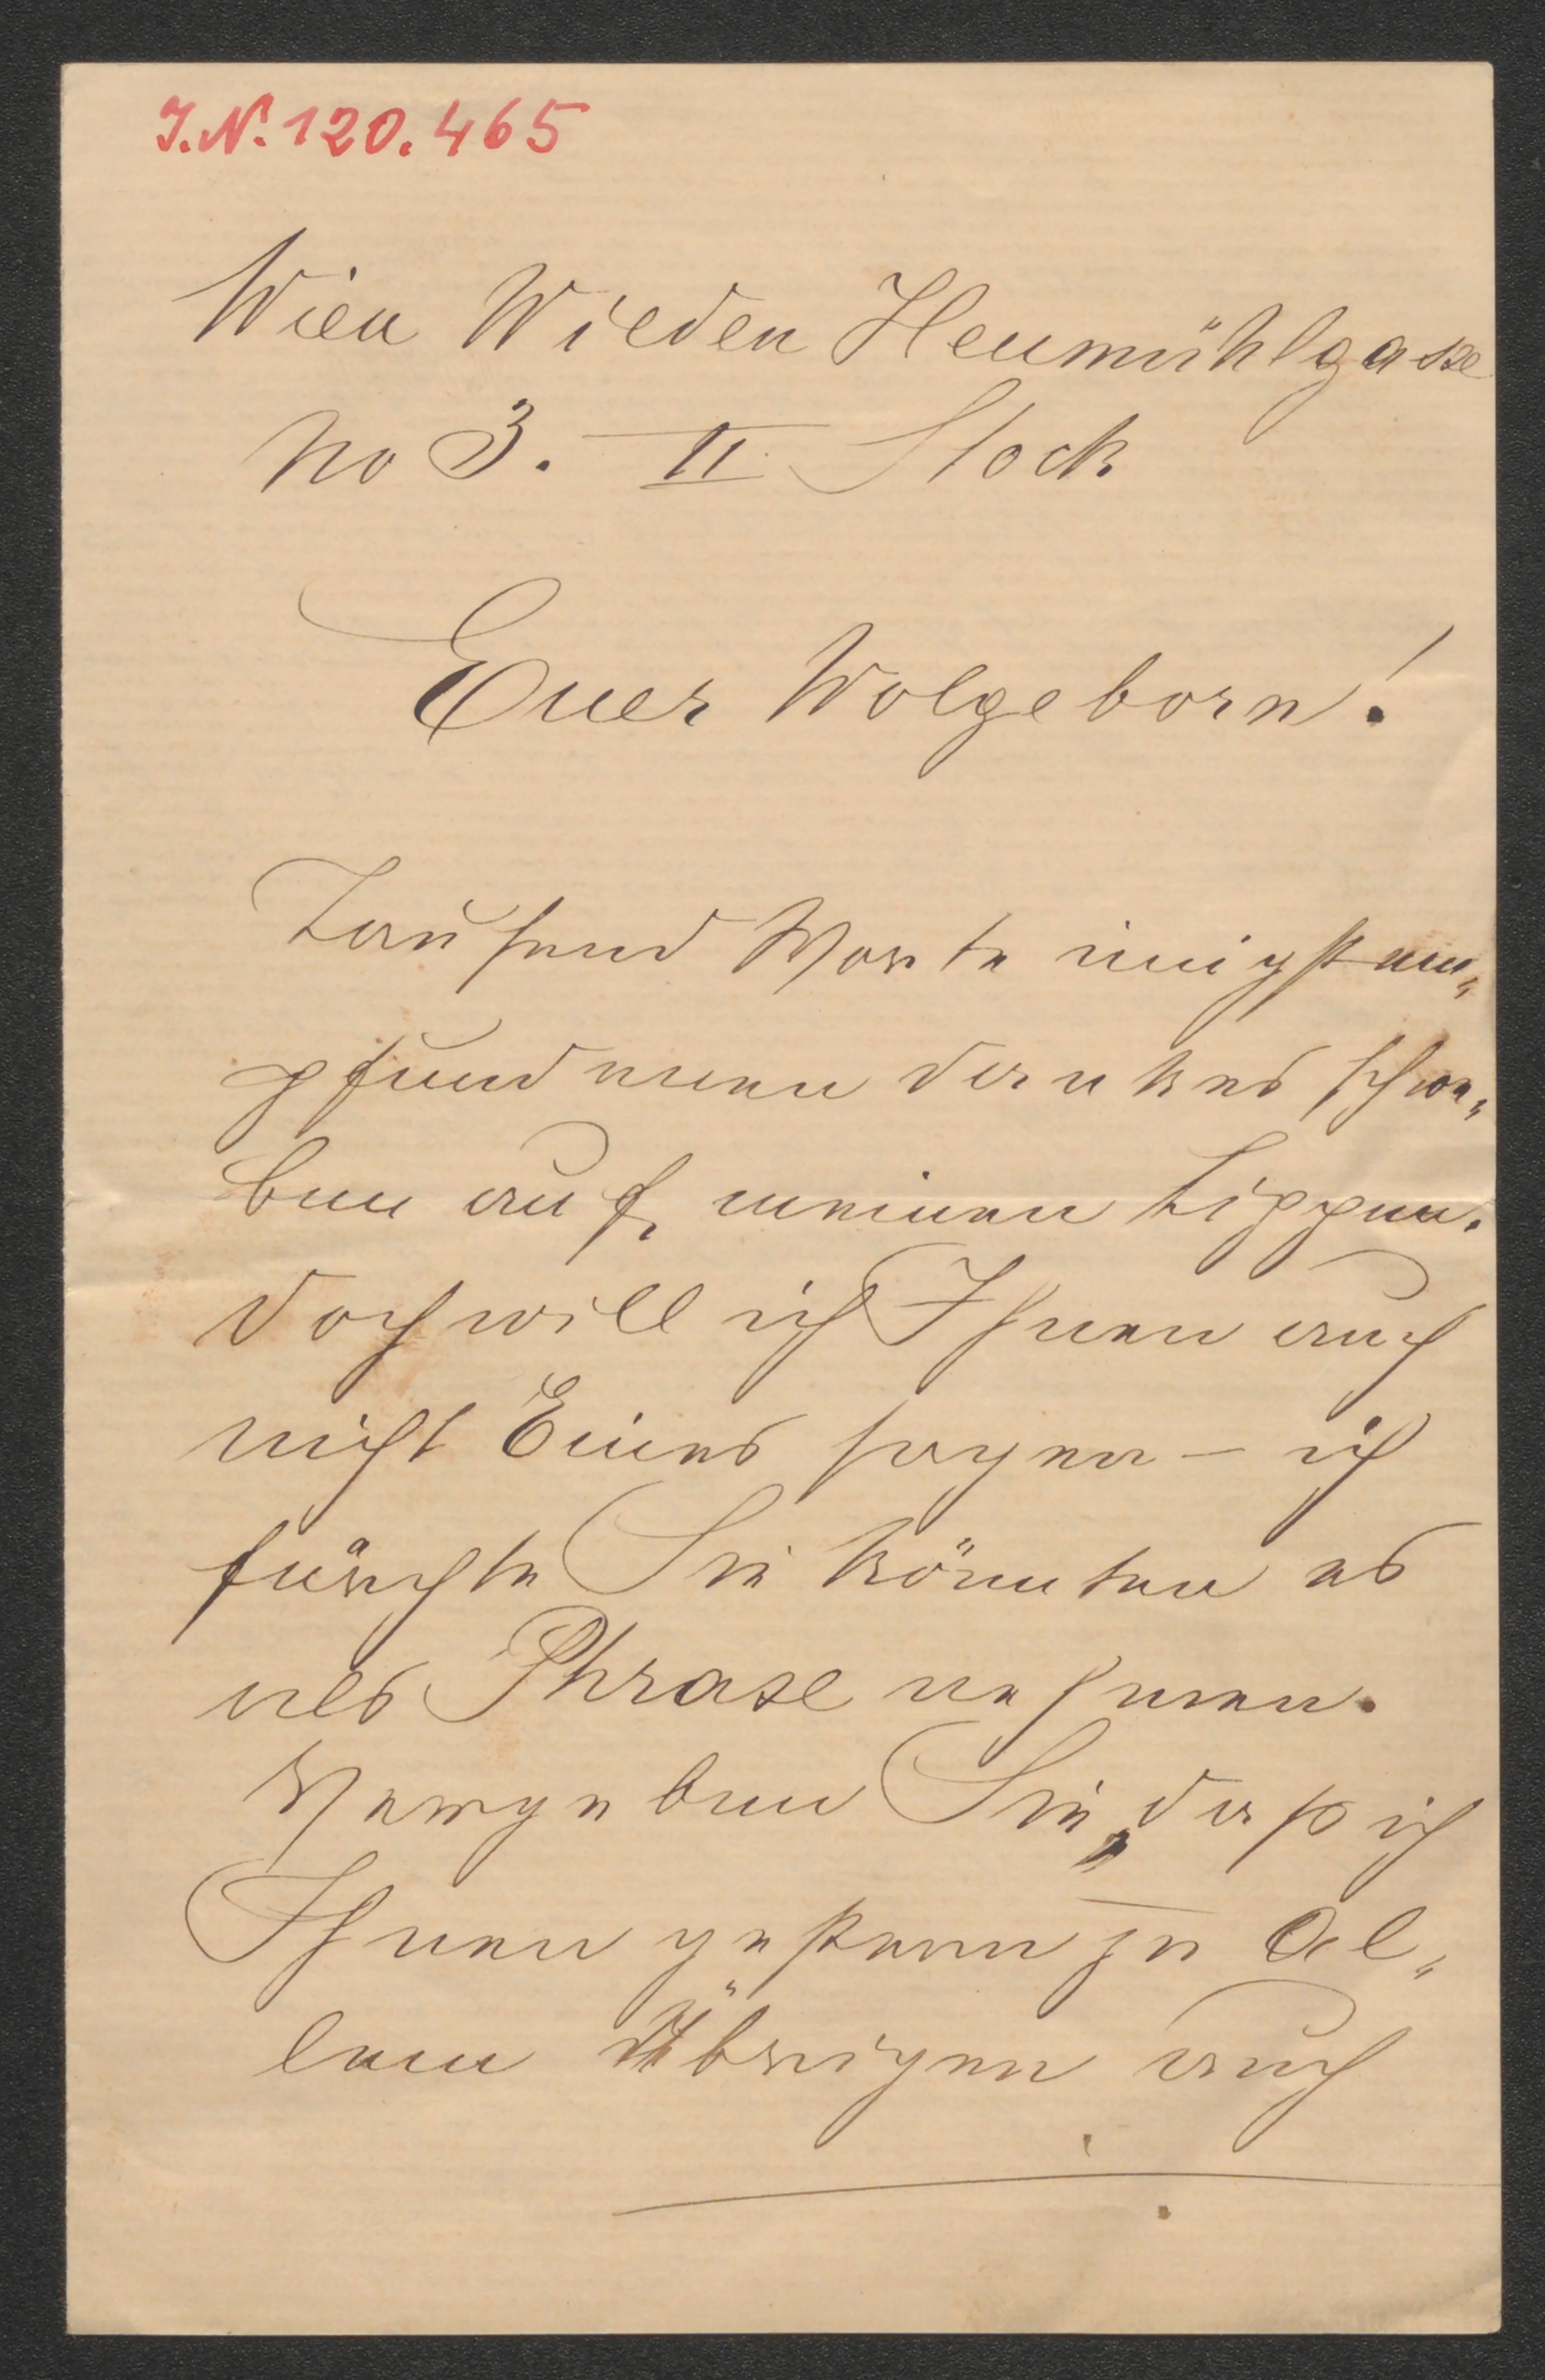 J.N. 120.465
Wien Wieden Heumühlgasse
No 3. II Stock
Euer Wolgeborn!
Tausend Worte innigst em„
pfundenen Dankes schwe„
ben auf meinen Lippen.
Doch will ich Ihnen auch
nicht Eines sagen – ich
fürchte Sie könnten es
als Phrase nehmen.
Vergeben Sie, daß ich
Ihnen gestern zu Al„
lem Übrigen auch